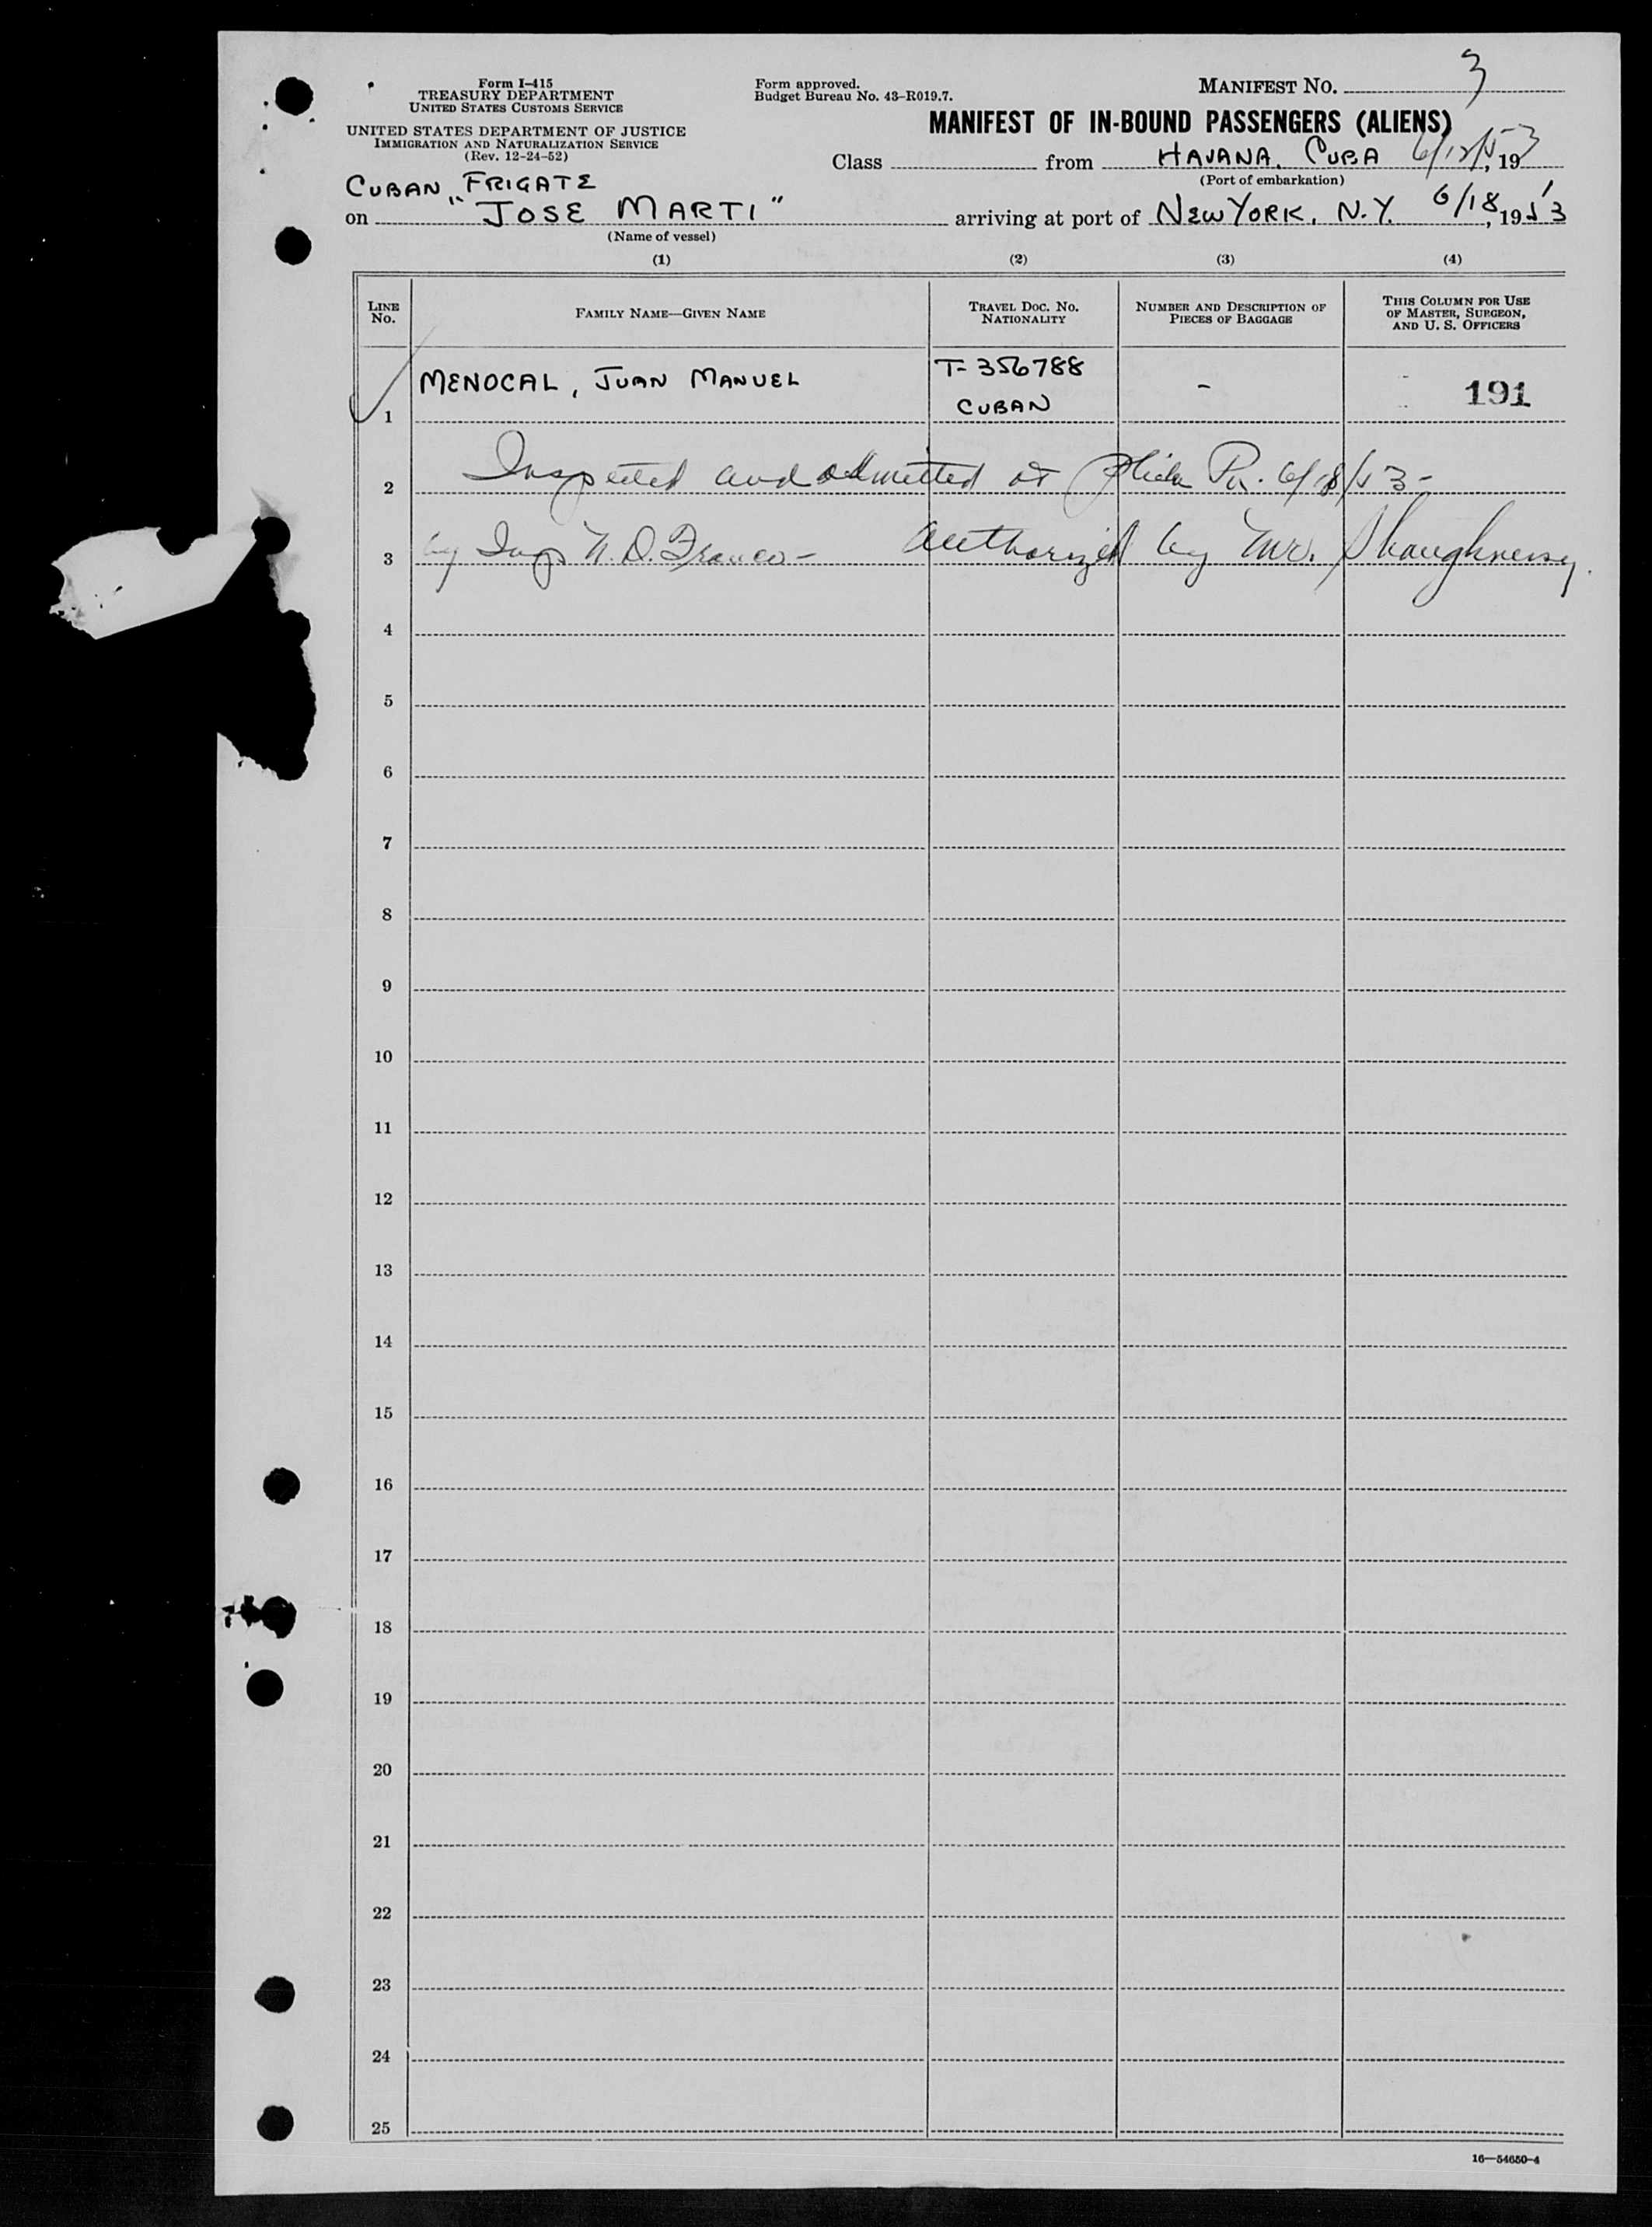 Form I-415
TREASURY DEPARTMENT
UNITED STATES CUSTOMS SERVICE
UNITED STATES DEPARTMENT OF JUSTICE
IMMIGRATION AND NATURALIZATION SERVICE
(Rev. 12-24-52)
Form approved.
Budget Bureau No. 43-R019.7.
MANIFEST NO. 3
MANIFEST OF IN-BOUND PASSENGERS (ALIENS)
Class from HAVANA, CUBA 6/12/53, 19
(Port of embarkation)
CUBAN FRIGATE
on "JOSE MARTI" arriving at port of NEW YORK, N.Y. 6/18, 1953
(Name of vessel)
(1) (2) (3) (4)
LINE NO. FAMILY NAME—GIVEN NAME TRAVEL DOC. NO. NATIONALITY NUMBER AND DESCRIPTION OF PIECES OF BAGGAGE THIS COLUMN FOR USE OF MASTER, SURGEON, AND U. S. OFFICERS
1 MENOCAL, JUAN MANUEL T-356788 CUBAN - 191
2 Inspected and admitted at 6/18/53-
3 by Insp N. D. Franco- Authorized by Mr. Shaughnessy.
4
5
6
7
8
9
10
11
12
13
14
15
16
17
18
19
20
21
22
23
24
25
16—54650-4